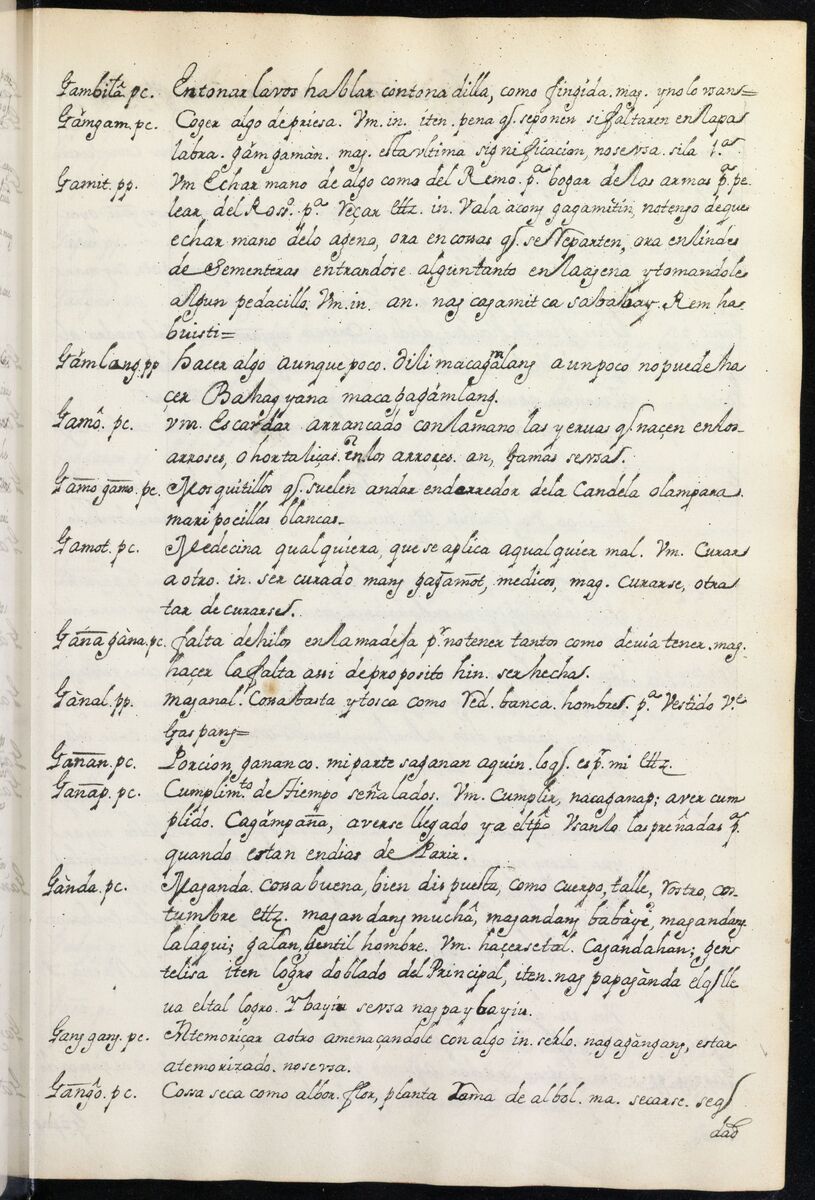 Gambitâ. pc. Entonar la vos hablar con tonadilla, como fingida. mag. y no lo usan=
Gámgam. pc. Coger algo depriesa. Vm. in. iten. pena q̃. se ponen si faltaren en lla pa
labra. gámgamàn. mag. esta vltima significacion, no se vsa. si la 1.ª
Gamit. pp. Vm Echar mano de algo como del Remo. p.ª bogar de las armas p.ª pe
lear, del Ros.º p.ª reçar ettz. in. Vala acong gagamitin, no tengo de que
echar mano de lo ageno, ora en cossas q̃. se rreparten, ora en lindes
de Sementeras entrandose algun tanto en lla agena y tomandole
algun pedacillo. Vm. in. an. nag cagamit ca sa bahay. Rem ha
buisti=
Gámlang. pp hacer algo aunque poco. dili macagamlang aun poco no puede ha
çer Bahagyana macagagámlang.
Gamô. pc. vm. Escardar arrancado con la mano las yeruas q̃. naçen en los
arroses, o hortaliças en los arroces. an, gamas se vsa.
Gamo gamo. pc. Mosquitillos q̃. suelen andar enderredor de la Candela o lampara.
maripocillas blancas.
Gamot. pc. Medecina qualquiera, que se aplica a qualquier mal. Vm. Curar
a otro. in. ser curado mang gagamot, medico, mag. Curarse, o tra
tar de curarse.
Gana gàna. pc. falta de hilos en la madeja p.r no tener tantos como deuia tener. mag.
haçer la falta assi de proposito hin. ser hecha.
Gànal. pp. maganal. Cossa basta y tosca como red. banca. hombre. p.ª Vestido V.e
Gaspang=
Ganan. pc. Porcion, ganan co. mi parte sa ganan aquin. lo q̃. es p.r mi ettz.
Ganap. pc. Cumplim.to de tiempo señalado. Vm. Cumplir, nacaganap; aver cum
plido. Cagampana, averse llegado ya el tp̃o Vsanlo las preñadas p.ª
quando estan en dias de Parir.
Gànda. pc. Maganda. cossa buena, bien dispuesta, como cuerpo, talle, rostro, cos
tumbre ettz. magandang muchâ, magandang babàye, magandang
lalaqui; galan, gentil hombre. Vm. haçerse tal. Cagandahan; gen
telisa iten logro doblado del Principal, iten. nag papagànda el q̃ lle
ua el tal logro. Ybayiu se vsa nag pay bayiu.
Gang gang. pc. Atemoriçar a otro amenaçandole con algo in. serlo. nagagàngang, estar
atemorizado. no se vsa.
Gangô. pc. Cossa seca como arbor. flor, planta rama de albol. ma. secarse. seq̃
dad